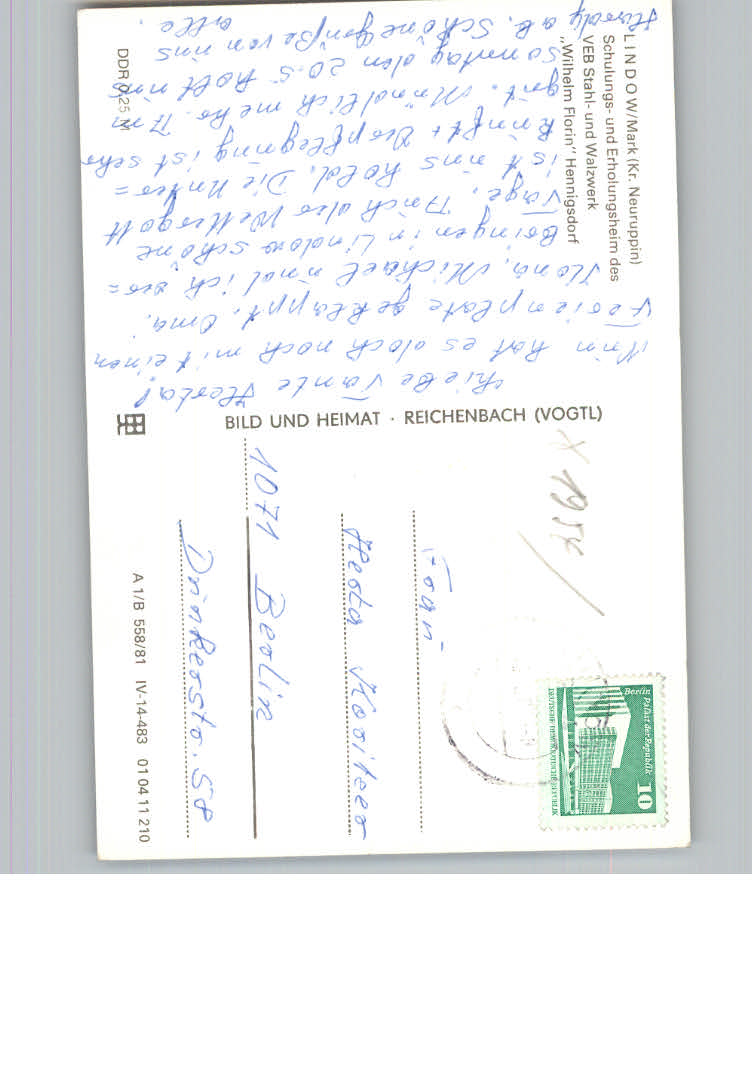 LINDOW/Mark (Kr. Neuruppin)
Schulungs- und Erholungsheim des
VEB Stahl- und Walzwerk
„Wilhelm Florin" Hennigsdorf
Liebe Tante Herta!
Nun hat es doch noch mit einen
Ferienplatz geklappt. Oma,
Ilona, Michael und ich ver=
bringen in Lindow schöne
Tage. Auch der Wettergott
ist uns hold. Die Unter=
kunft + Verpflegung ist sehr
gut. Mündlich mehr. Am
Sonntag den 20.5 holt uns
ab. Schöne Grüße von uns
alle
BILD UND HEIMAT · REICHENBACH (VOGTL)
DDR 0,25 M
A 1/B 558/81 IV-14-483 01 04 11 210
Frau
Herta
1071 Berlin
58
Berlin
Palast der Republik
10
DEUTSCHE DEMOKRATISCHE REPUBLIK